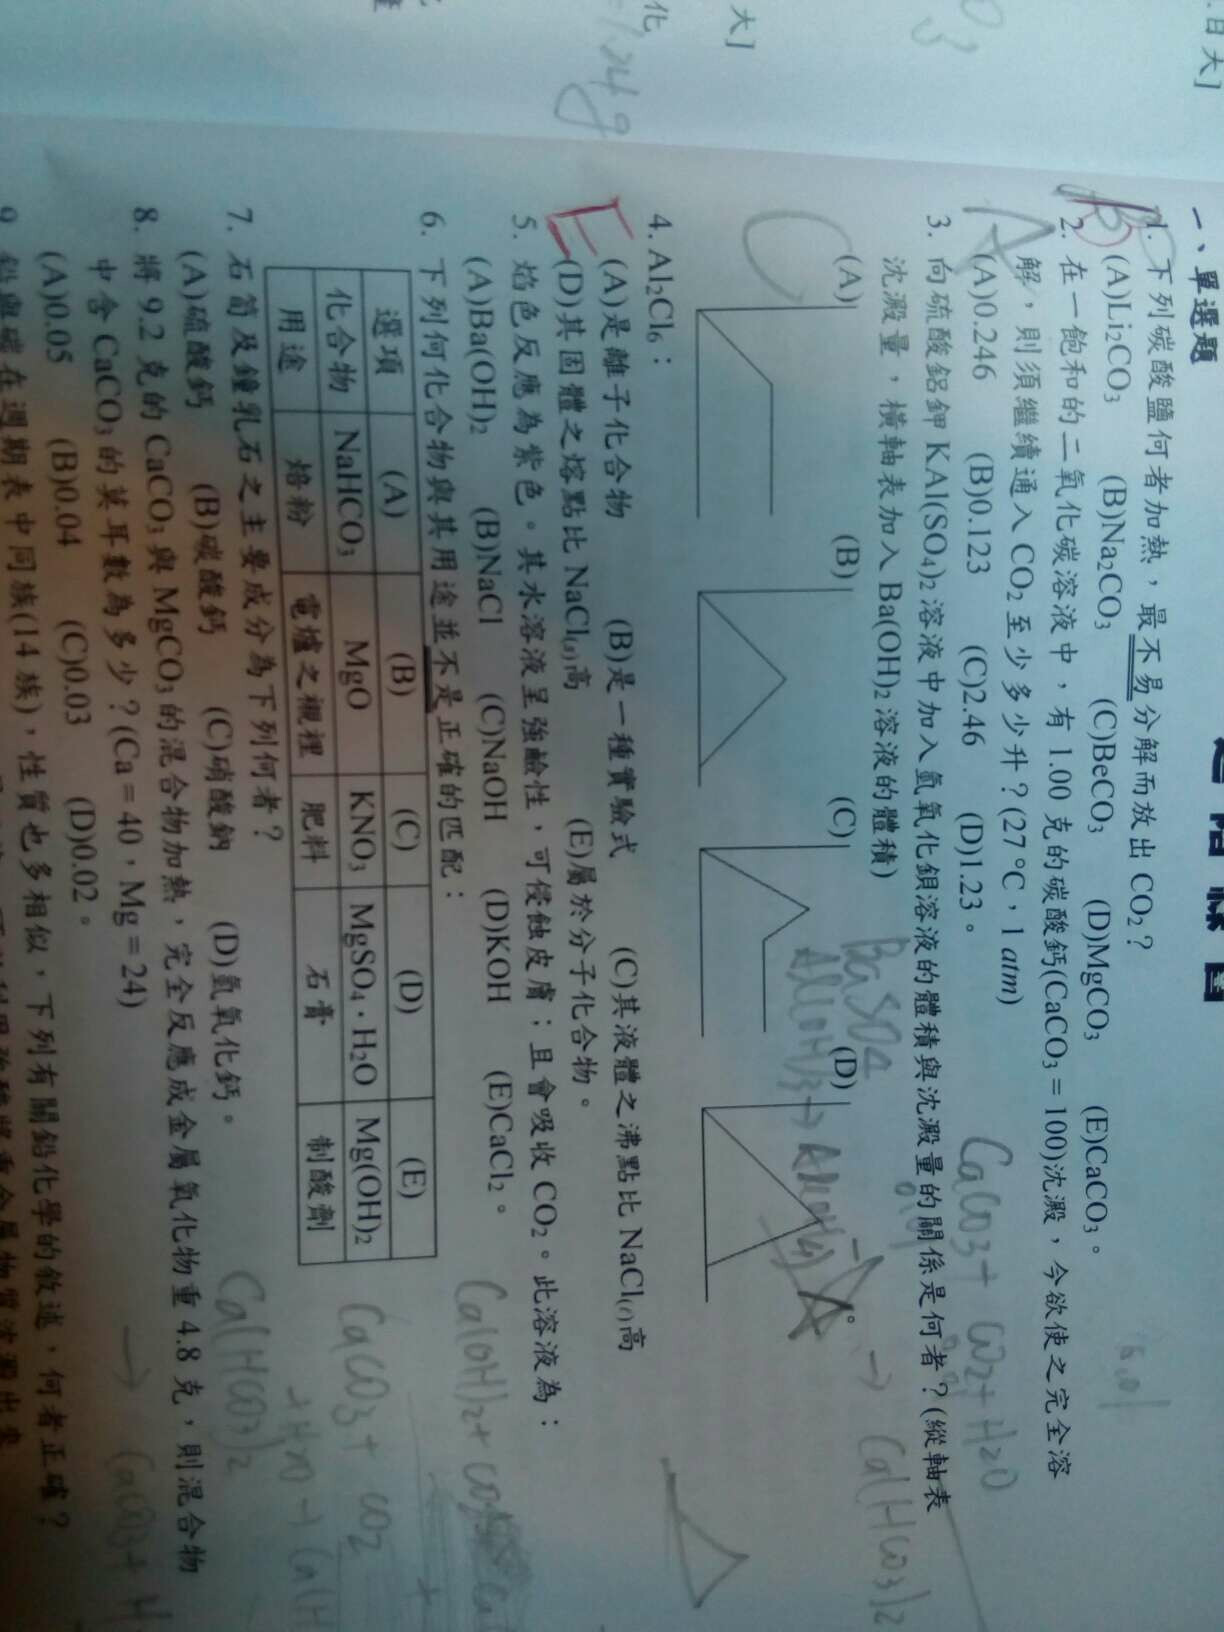 一、單選題
1. 下列碳酸鹽何者加熱，最不易分解而放出 CO₂？
(A)Li₂CO₃ (B)Na₂CO₃ (C)BeCO₃ (D)MgCO₃ (E)CaCO₃。
2. 在一飽和的二氧化碳溶液中，有 1.00 克的碳酸鈣(CaCO₃＝100)沈澱，今欲使之完全溶
解，則須繼續通入 CO₂ 至少多少升？(27 °C，1 atm)
(A)0.246 (B)0.123 (C)2.46 (D)1.23。
3. 向硫酸鋁鉀 KAl(SO₄)₂ 溶液中加入氫氧化鋇溶液的體積與沈澱量的關係是何者？(縱軸表
沈澱量，橫軸表加入 Ba(OH)₂ 溶液的體積)
(A) (B) (C) (D) 。
4. Al₂Cl₆：
(A)是離子化合物 (B)是一種實驗式 (C)其液體之沸點比 NaCl(l)高
(D)其固體之熔點比 NaCl(s)高 (E)屬於分子化合物。
5. 焰色反應為紫色。其水溶液呈強鹼性，可侵蝕皮膚；且會吸收 CO₂。此溶液為：
(A)Ba(OH)₂ (B)NaCl (C)NaOH (D)KOH (E)CaCl₂。
6. 下列何化合物與其用途並不是正確的匹配：
選項 (A) (B) (C) (D) (E)
化合物 NaHCO₃ MgO KNO₃ MgSO₄·H₂O Mg(OH)₂
用途 焙粉 電爐之襯裡 肥料 石膏 制酸劑
7. 石筍及鐘乳石之主要成分為下列何者？
(A)硫酸鈣 (B)碳酸鈣 (C)硝酸鈉 (D)氫氧化鈣。
8. 將 9.2 克的 CaCO₃ 與 MgCO₃ 的混合物加熱，完全反應成金屬氧化物重 4.8 克，則混合物
中含 CaCO₃ 的莫耳數為多少？(Ca＝40，Mg＝24)
(A)0.05 (B)0.04 (C)0.03 (D)0.02。
9. 鉛與碳在週期表中同族(14 族)，性質也多相似，下列有關鉛化學的敘述，何者正確？
B
A
C
E
CaCO₃ + CO₂ + H₂O
→ Ca(HCO₃)₂
BaSO₄
Al(OH)₃ → Al(OH)₄⁻
Ca(OH)₂ + CO₂
CaCO₃ + CO₂
+ H₂O → Ca(H
Ca(HCO₃)₂
→ CaCO₃ + H
大]
化